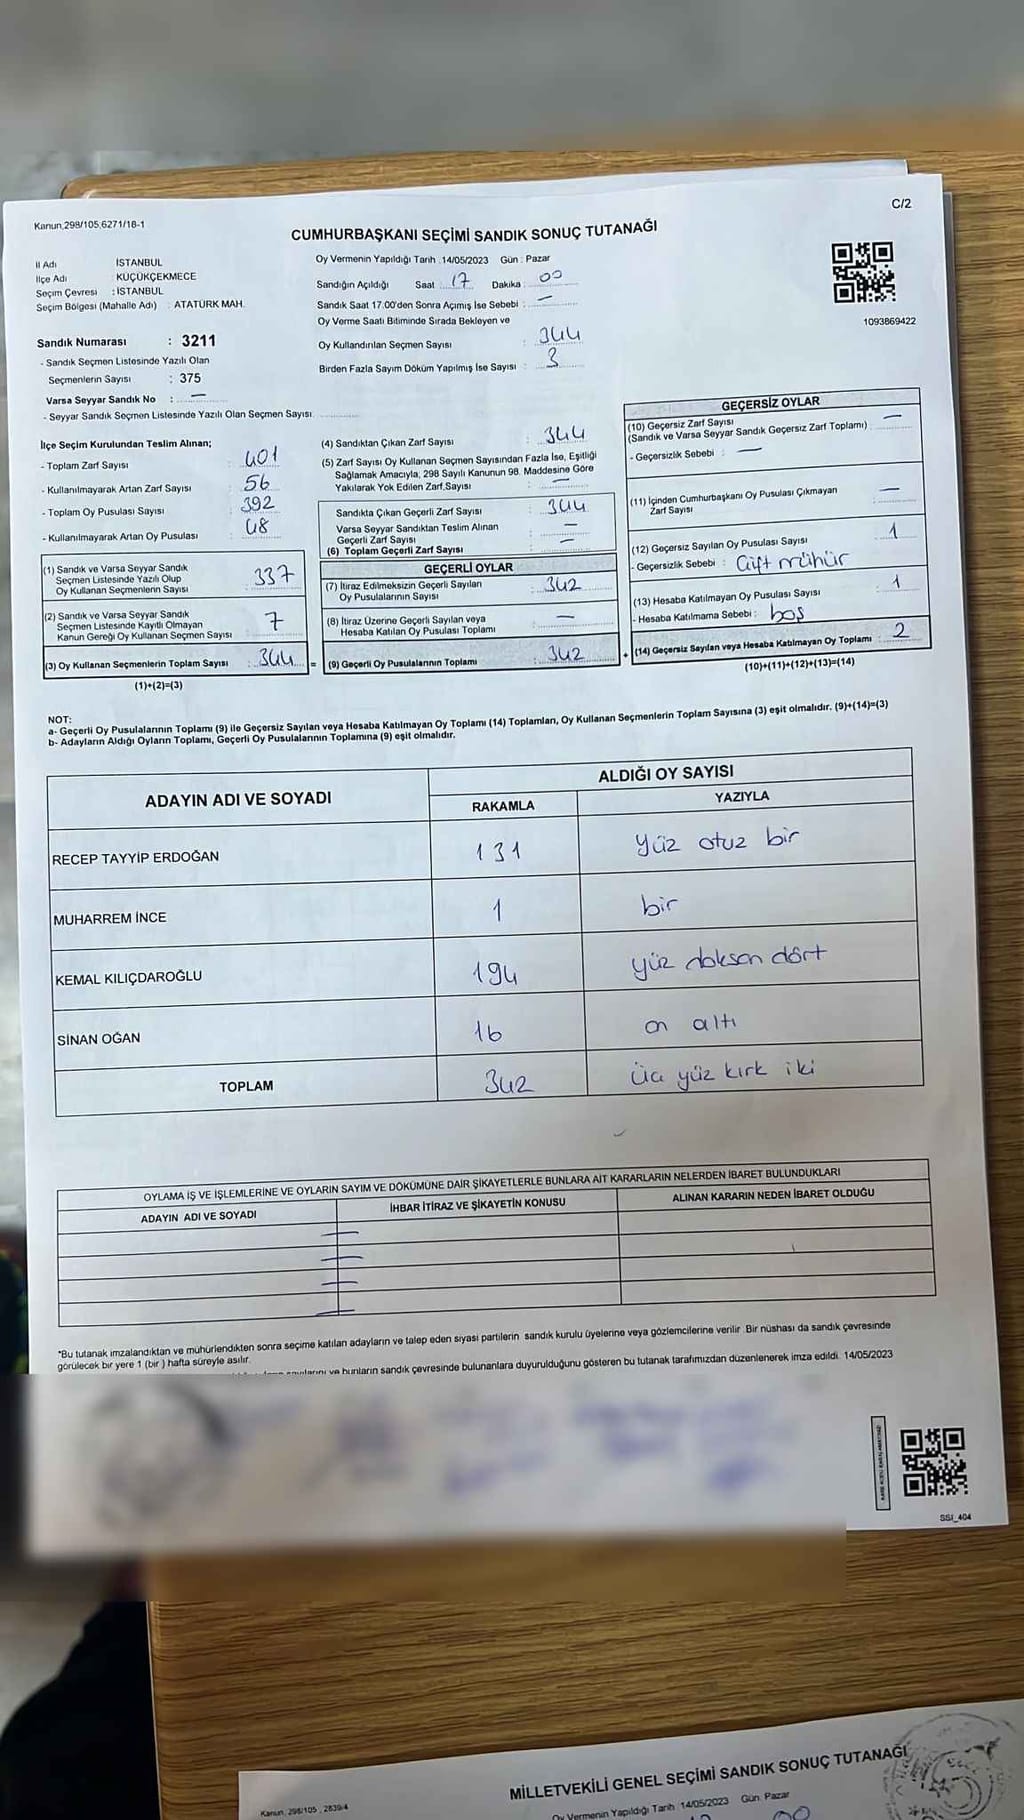 C/2
Kanun.298/105,6271/18-1
CUMHURBAŞKANI SEÇİMİ SANDIK SONUÇ TUTANAĞI
İl Adı İSTANBUL
İlçe Adı : KÜÇÜKÇEKMECE
Seçim Çevresi : İSTANBUL
Seçim Bölgesi (Mahalle Adı) : ATATÜRK MAH.
Sandık Numarası : 3211
- Sandık Seçmen Listesinde Yazılı Olan
Seçmenlerin Sayısı : 375
Varsa Seyyar Sandık No : —
- Seyyar Sandık Seçmen Listesinde Yazılı Olan Seçmen Sayısı
Oy Vermenin Yapıldığı Tarih :14/05/2023 Gün : Pazar
Sandığın Açıldığı Saat : 17 Dakika : 00
Sandık Saat 17.00'den Sonra Açımış İse Sebebi : —
Oy Verme Saati Bitiminde Sırada Bekleyen ve
Oy Kullandırılan Seçmen Sayısı : 344
Birden Fazla Sayım Döküm Yapılmış İse Sayısı : 3
1093869422
İlçe Seçim Kurulundan Teslim Alınan;
- Toplam Zarf Sayısı : 401
- Kullanılmayarak Artan Zarf Sayısı : 56
- Toplam Oy Pusulası Sayısı : 392
- Kullanılmayarak Artan Oy Pusulası : 48
(1) Sandık ve Varsa Seyyar Sandık
Seçmen Listesinde Yazılı Olup
Oy Kullanan Seçmenlerin Sayısı : 337
(2) Sandık ve Varsa Seyyar Sandık
Seçmen Listesinde Kayıtlı Olmayan
Kanun Gereği Oy Kullanan Seçmen Sayısı : 7
(3) Oy Kullanan Seçmenlerin Toplam Sayısı : 344
(1)+(2)=(3)
(4) Sandıktan Çıkan Zarf Sayısı : 344
(5) Zarf Sayısı Oy Kullanan Seçmen Sayısından Fazla İse, Eşitliği
Sağlamak Amacıyla, 298 Sayılı Kanunun 98. Maddesine Göre
Yakılarak Yok Edilen Zarf Sayısı : —
Sandıkta Çıkan Geçerli Zarf Sayısı : 344
Varsa Seyyar Sandıktan Teslim Alınan
Geçerli Zarf Sayısı : —
(6) Toplam Geçerli Zarf Sayısı : —
GEÇERLİ OYLAR
(7) İtiraz Edilmeksizin Geçerli Sayılan
Oy Pusulalarının Sayısı : 342
(8) İtiraz Üzerine Geçerli Sayılan veya
Hesaba Katılan Oy Pusulası Toplamı : —
= (9) Geçerli Oy Pusulalarının Toplamı : 342
GEÇERSİZ OYLAR
(10) Geçersiz Zarf Sayısı : —
(Sandık ve Varsa Seyyar Sandık Geçersiz Zarf Toplamı)
- Geçersizlik Sebebi : —
(11) İçinden Cumhurbaşkanı Oy Pusulası Çıkmayan
Zarf Sayısı : —
(12) Geçersiz Sayılan Oy Pusulası Sayısı : 1
- Geçersizlik Sebebi : Çift mühür
(13) Hesaba Katılmayan Oy Pusulası Sayısı : 1
- Hesaba Katılmama Sebebi : boş
+ (14) Geçersiz Sayılan veya Hesaba Katılmayan Oy Toplamı : 2
(10)+(11)+(12)+(13)=(14)
NOT:
a- Geçerli Oy Pusulalarının Toplamı (9) ile Geçersiz Sayılan veya Hesaba Katılmayan Oy Toplamı (14) Toplamları, Oy Kullanan Seçmenlerin Toplam Sayısına (3) eşit olmalıdır. (9)+(14)=(3)
b- Adayların Aldığı Oyların Toplamı, Geçerli Oy Pusulalarının Toplamına (9) eşit olmalıdır.
ADAYIN ADI VE SOYADI
ALDIĞI OY SAYISI
RAKAMLA YAZIYLA
RECEP TAYYİP ERDOĞAN 131 yüz otuz bir
MUHARREM İNCE 1 bir
KEMAL KILIÇDAROĞLU 194 yüz doksan dört
SİNAN OĞAN 16 on altı
TOPLAM 342 Üç yüz kırk iki
OYLAMA İŞ VE İŞLEMLERİNE VE OYLARIN SAYIM VE DÖKÜMÜNE DAİR ŞİKAYETLERLE BUNLARA AİT KARARLARIN NELERDEN İBARET BULUNDUKLARI
ADAYIN ADI VE SOYADI İHBAR İTİRAZ VE ŞİKAYETİN KONUSU ALINAN KARARIN NEDEN İBARET OLDUĞU
*Bu tutanak imzalandıktan ve mühürlendikten sonra seçime katılan adayların ve talep eden siyasi partilerin sandık kurulu üyelerine veya gözlemcilerine verilir. Bir nüshası da sandık çevresinde
görülecek bir yere 1 (bir ) hafta süreyle asılır.
ve bunların sandık çevresinde bulunanlara duyurulduğunu gösteren bu tutanak tarafımızdan düzenlenerek imza edildi. 14/05/2023
SSI_404
MİLLETVEKİLİ GENEL SEÇİMİ SANDIK SONUÇ TUTANAĞI
Kanun. 298/105 , 2839/4
Oy Vermenin Yapıldığı Tarih :14/05/2023 Gün: Pazar